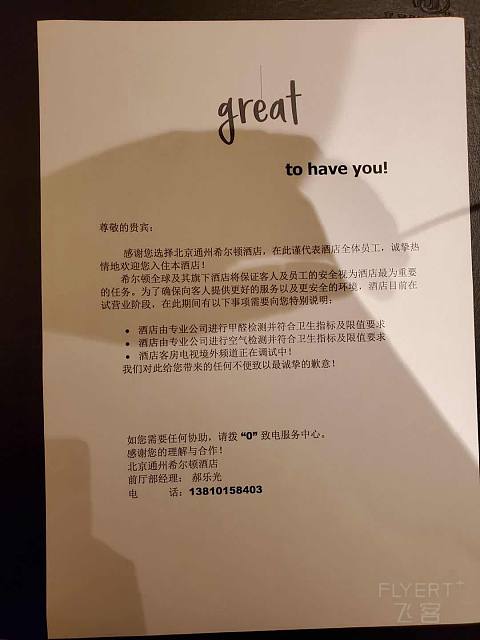 great
to have you!
尊敬的贵宾：
感谢您选择北京通州希尔顿酒店，在此谨代表酒店全体员工，诚挚热
情地欢迎您入住本酒店！
希尔顿全球及其旗下酒店将保证客人及员工的安全视为酒店最为重要
的任务。为了确保向客人提供更好的服务以及更安全的环境，酒店目前在
试营业阶段，在此期间有以下事项需要向您特别说明：
• 酒店由专业公司进行甲醛检测并符合卫生指标及限值要求
• 酒店由专业公司进行空气检测并符合卫生指标及限值要求
• 酒店客房电视境外频道正在调试中！
我们对此给您带来的任何不便致以最诚挚的歉意！
如您需要任何协助，请拨 “0” 致电服务中心。
感谢您的理解与合作！
北京通州希尔顿酒店
前厅部经理： 郝乐光
电 话：13810158403
FLYERT+
飞客